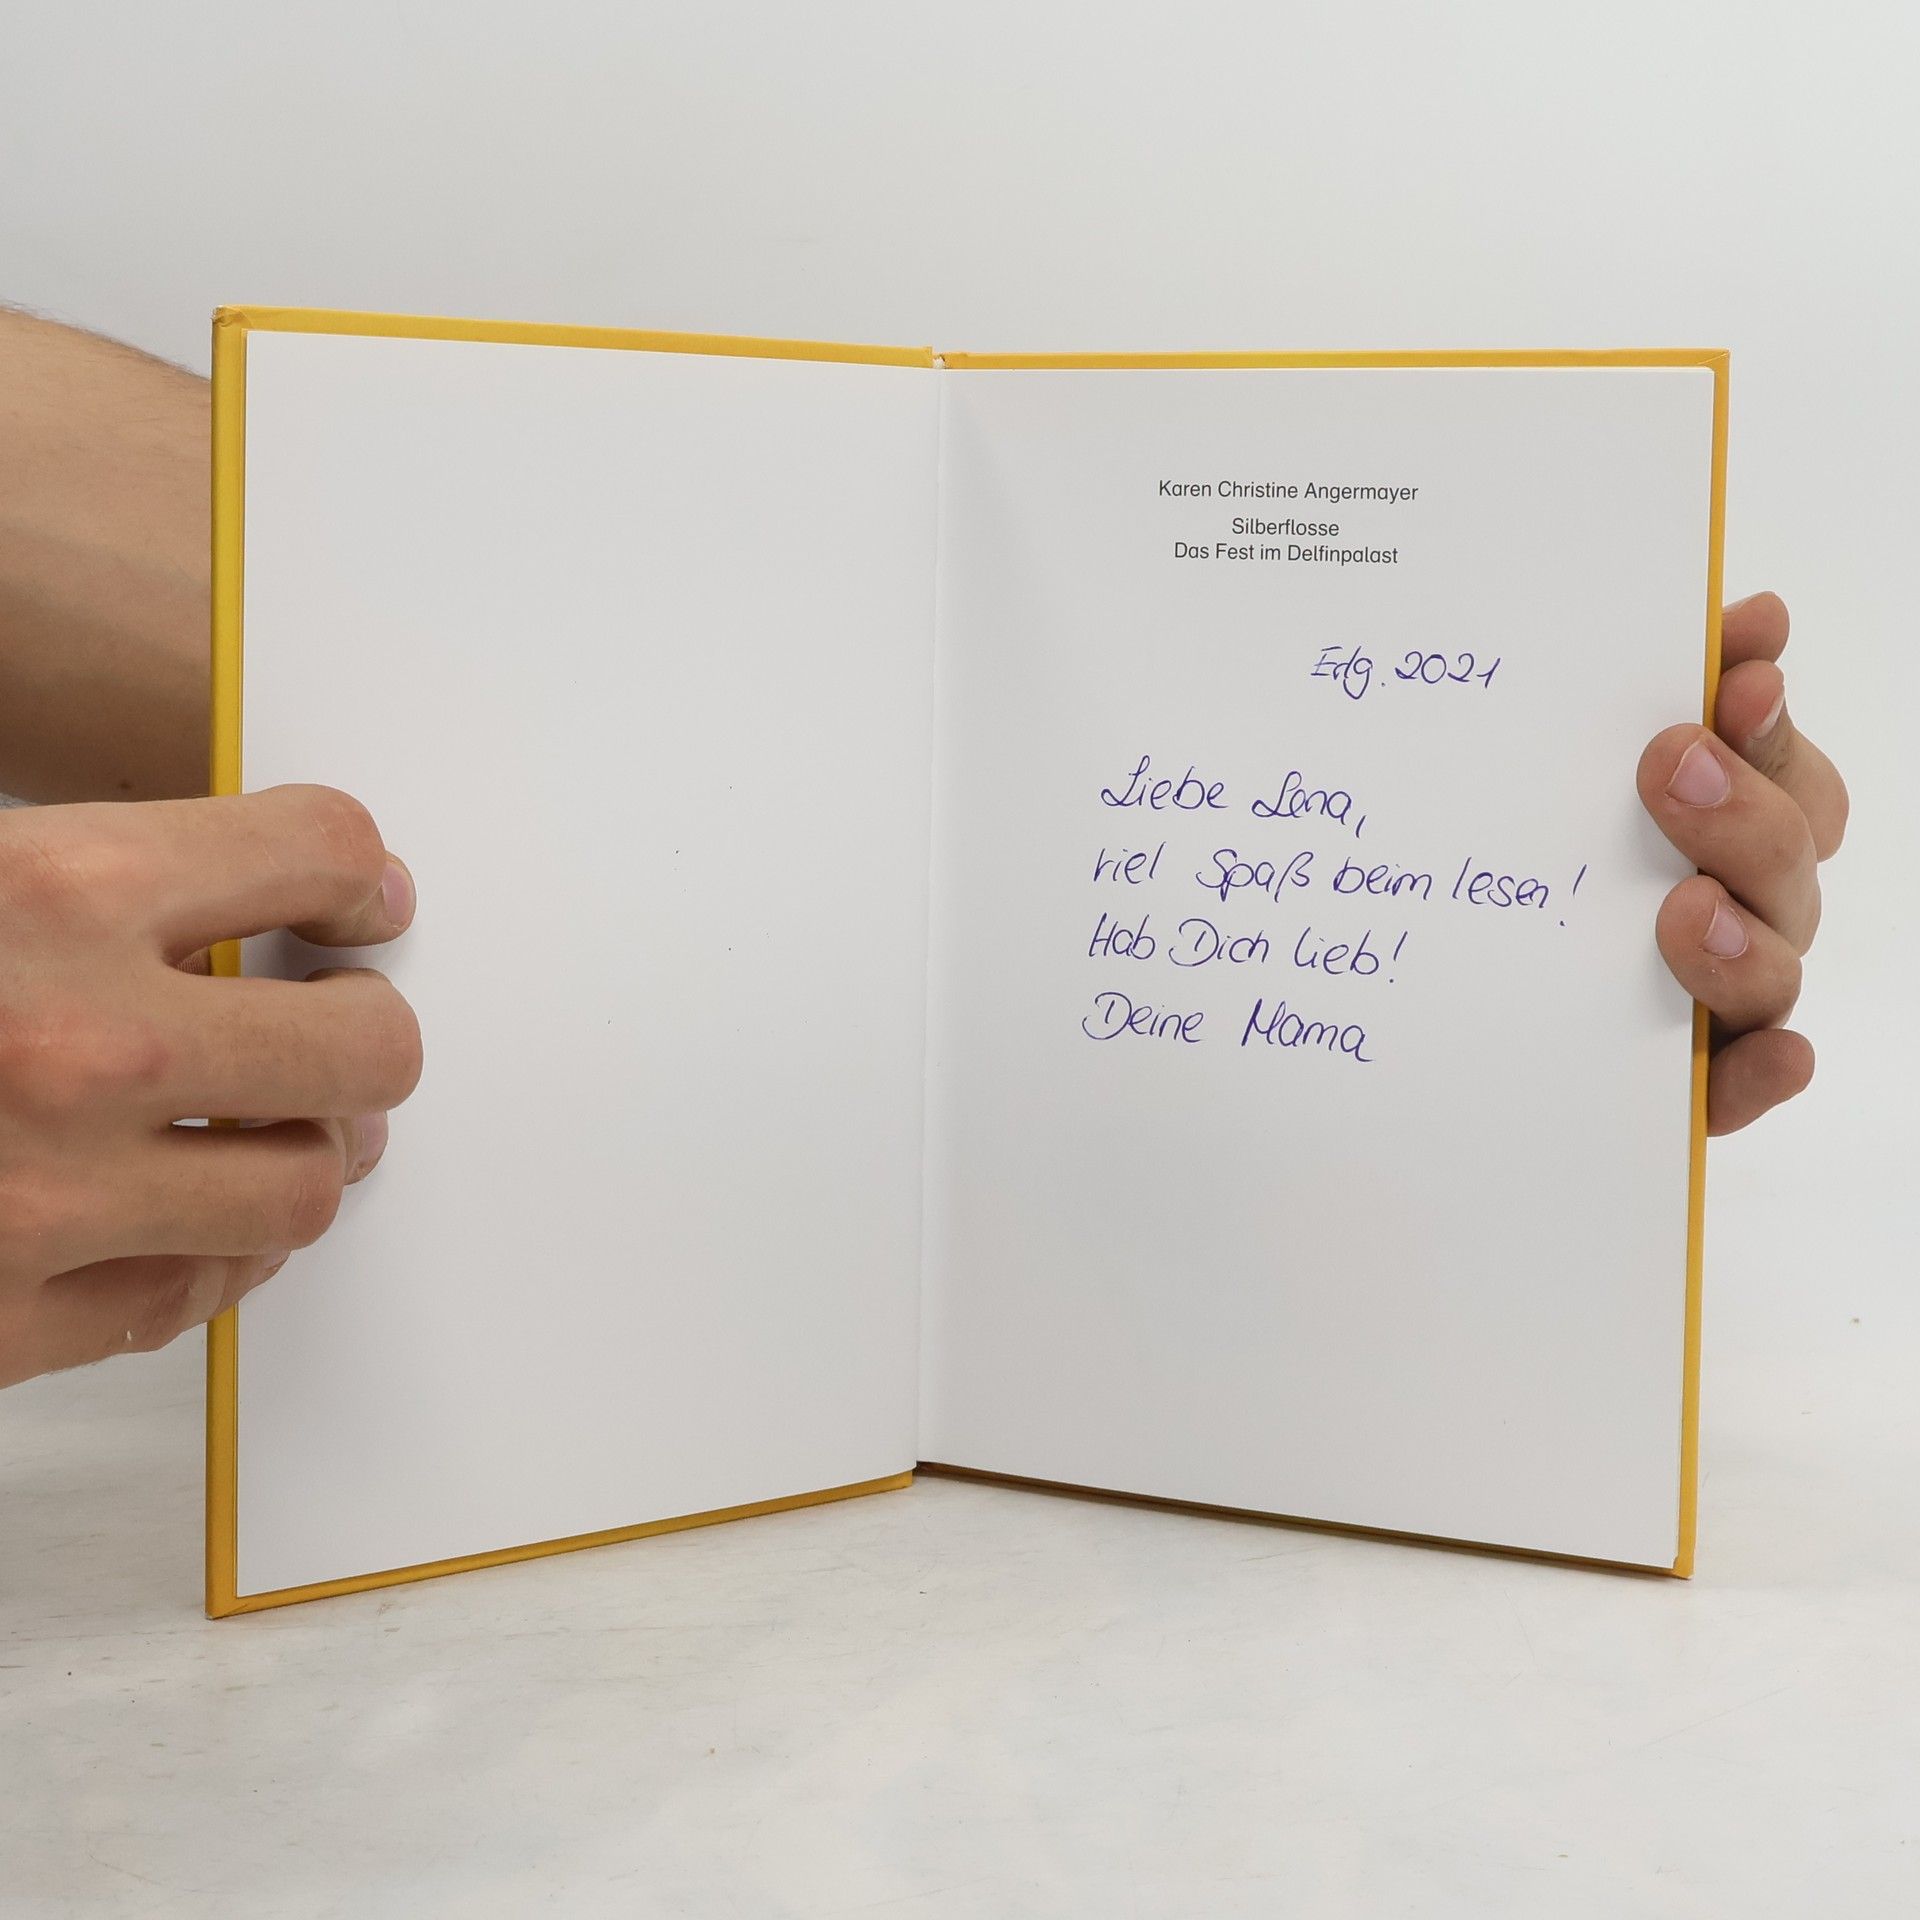 Karen Christine Angermayer
Silberflosse
Das Fest im Delfinpalast
2021
Liebe Lena,
viel Spaß beim lesen!
Hab Dich lieb!
Deine Mama